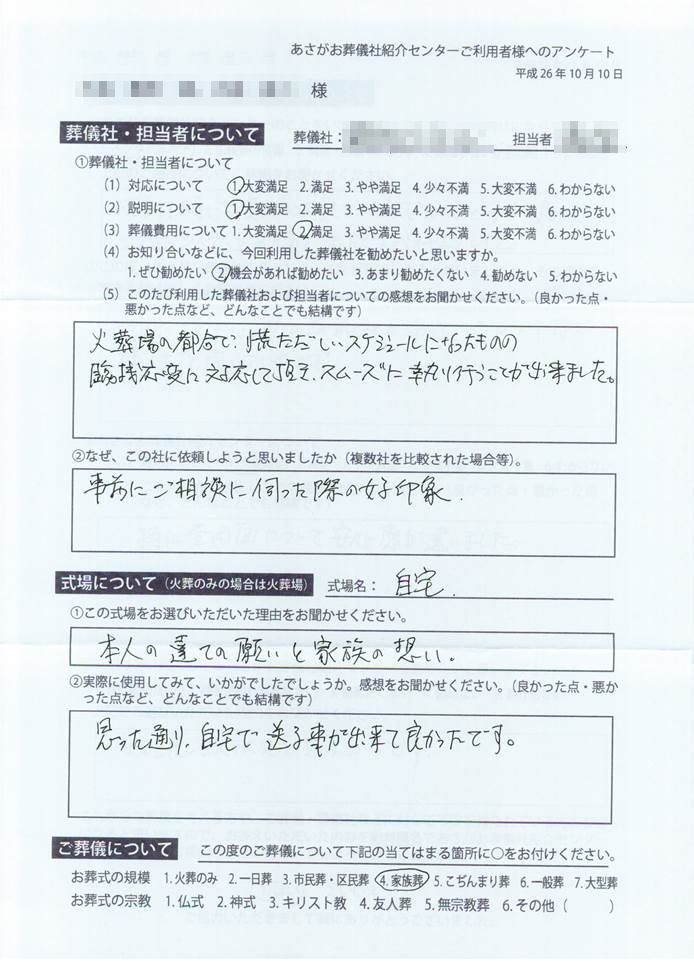 あさがお葬儀社紹介センターご利用者様へのアンケート
平成26年10月10日
様
葬儀社・担当者について 葬儀社： 担当者
①葬儀社・担当者について
(1) 対応について ①大変満足 2.満足 3.やや満足 4.少々不満 5.大変不満 6.わからない
(2) 説明について ①大変満足 2.満足 3.やや満足 4.少々不満 5.大変不満 6.わからない
(3) 葬儀費用について 1.大変満足 ②満足 3.やや満足 4.少々不満 5.大変不満 6.わからない
(4) お知り合いなどに、今回利用した葬儀社を勧めたいと思いますか。
1.ぜひ勧めたい ②機会があれば勧めたい 3.あまり勧めたくない 4.勧めない 5.わからない
(5) このたび利用した葬儀社および担当者についての感想をお聞かせください。（良かった点・
悪かった点など、どんなことでも結構です）
火葬場の都合で、慌ただしいスケジュールになったものの
臨機応変に対応して頂き、スムーズに執り行うことが出来ました。
②なぜ、この社に依頼しようと思いましたか（複数社を比較された場合等）。
事前にご相談に伺った際の好印象.
式場について（火葬のみの場合は火葬場） 式場名： 自宅.
①この式場をお選びいただいた理由をお聞かせください。
本人の達ての願いと家族の想い。
②実際に使用してみて、いかがでしたでしょうか。感想をお聞かせください。（良かった点・悪か
った点など、どんなことでも結構です）
思った通り、自宅で送る事が出来て良かったです。
ご葬儀について この度のご葬儀について下記の当てはまる箇所に○をお付けください。
お葬式の規模 1.火葬のみ 2.一日葬 3.市民葬・区民葬 4.家族葬 5.こぢんまり葬 6.一般葬 7.大型葬
お葬式の宗教 1.仏式 2.神式 3.キリスト教 4.友人葬 5.無宗教葬 6.その他（ ）